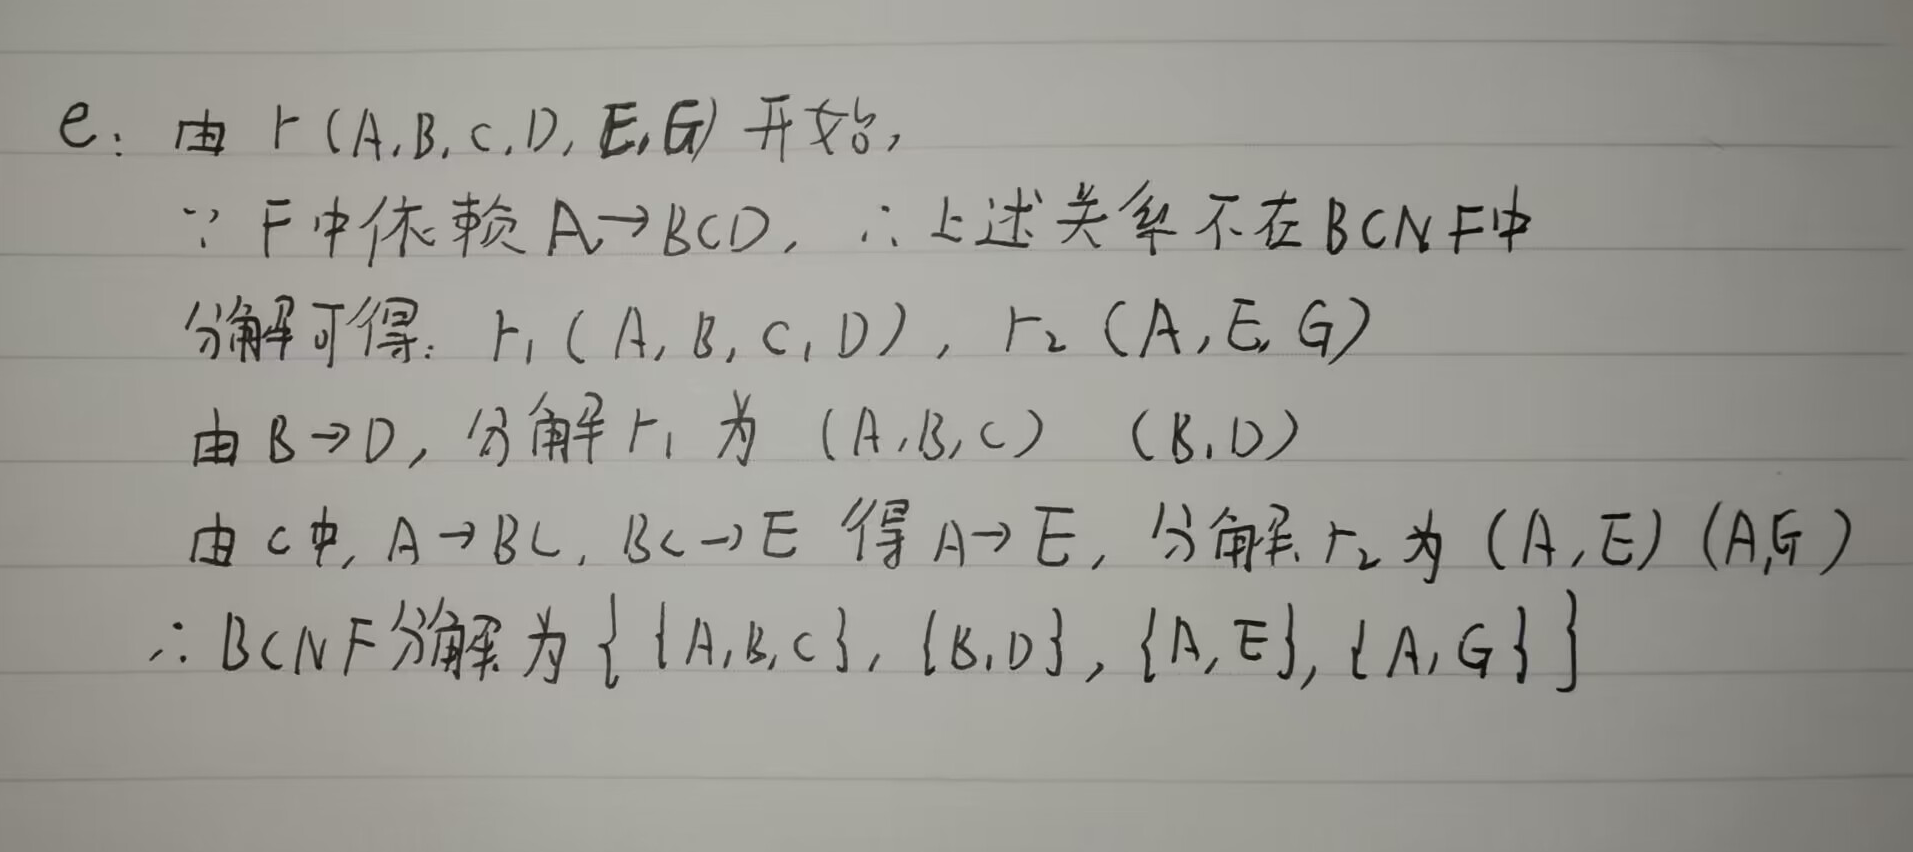 e: 由 r(A,B,C,D,E,G) 开始,
∵ F中依赖 A→BCD, ∴ 上述关系不在BCNF中
分解可得: r₁(A,B,C,D), r₂(A,E,G)
由 B→D, 分解 r₁ 为 (A,B,C) (B,D)
由 C中, A→BC, BC→E 得 A→E, 分解 r₂ 为 (A,E) (A,G)
∴ BCNF分解为 { {A,B,C}, {B,D}, {A,E}, {A,G} }